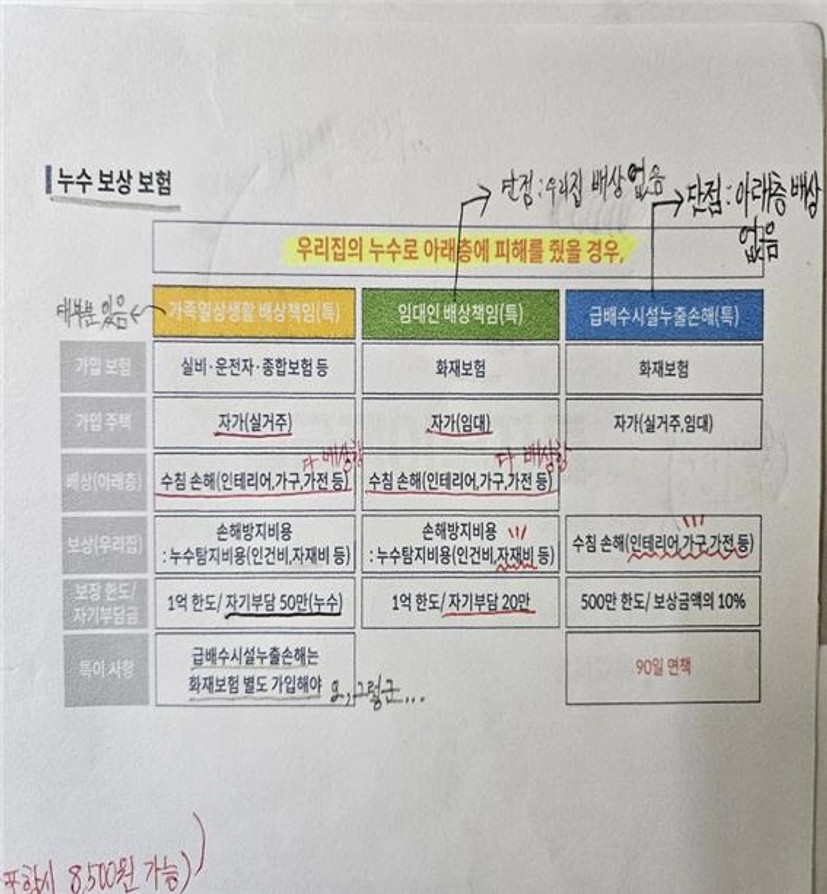 누수 보상 보험
단점 : 우리집 배상 없음
단점 : 아래층 배상 없음
우리집의 누수로 아래층에 피해를 줬을 경우,
대부분 있음
가족일상생활 배상책임(특) 임대인 배상책임(특) 급배수시설누출손해(특)
가입 보험 실비·운전자·종합보험 등 화재보험 화재보험
가입 주택 자가(실거주) 자가(임대) 자가(실거주,임대)
다 배상함 다 배상함
배상(아래층) 수침 손해(인테리어,가구,가전 등) 수침 손해(인테리어,가구,가전 등)
보상(우리집) 손해방지비용 손해방지비용 수침 손해(인테리어,가구,가전 등)
: 누수탐지비용(인건비,자재비 등) : 누수탐지비용(인건비,자재비 등)
보장 한도/ 1억 한도/ 자기부담 50만(누수) 1억 한도/ 자기부담 20만 500만 한도/ 보상금액의 10%
자기부담금
특이 사항 급배수시설누출손해는 90일 면책
화재보험 별도 가입해야 오, 그렇군...
포함시 8,500원 가능)